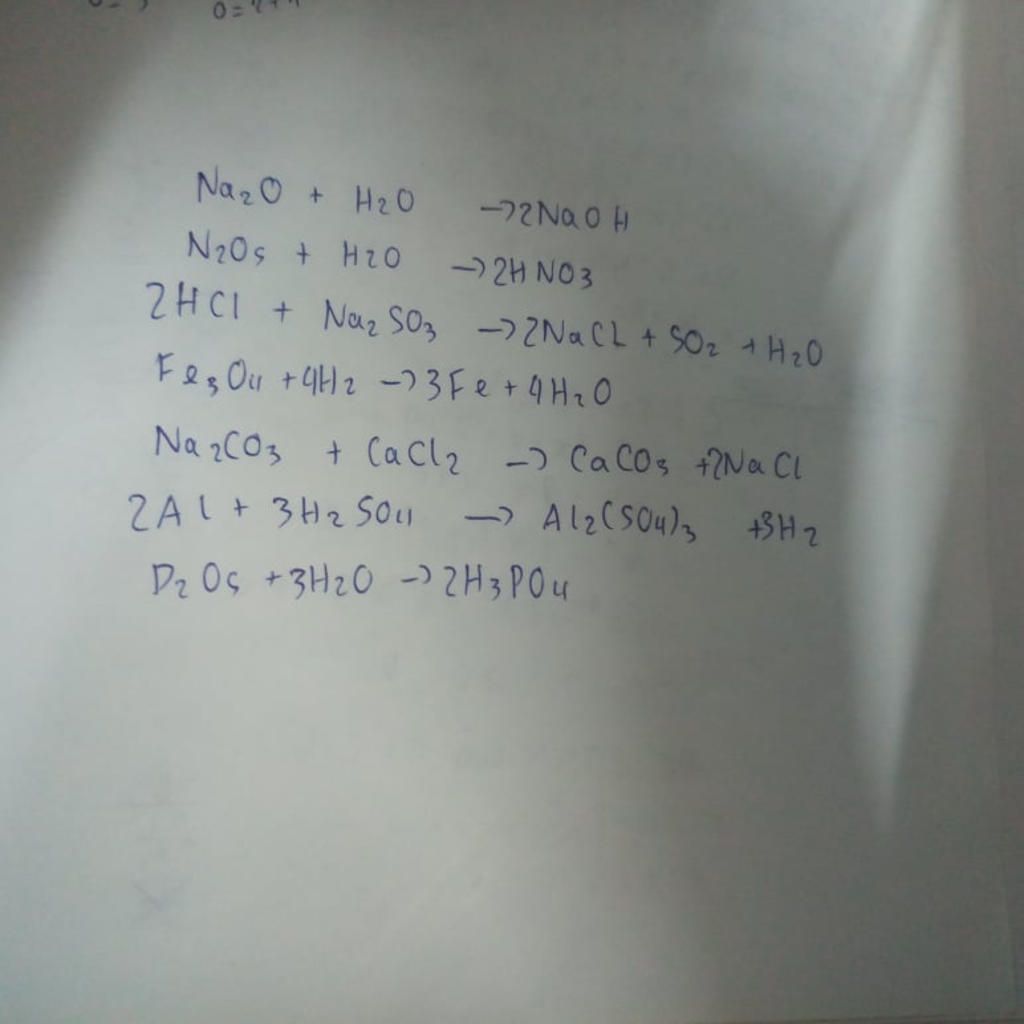 Na2O + H2O → 2NaOH
N2O5 + H2O → 2HNO3
2HCl + Na2SO3 → 2NaCl + SO2 + H2O
Fe3O4 + 4H2 → 3Fe + 4H2O
Na2CO3 + CaCl2 → CaCO3 + 2NaCl
2Al + 3H2SO4 → Al2(SO4)3 + 3H2
P2O5 + 3H2O → 2H3PO4